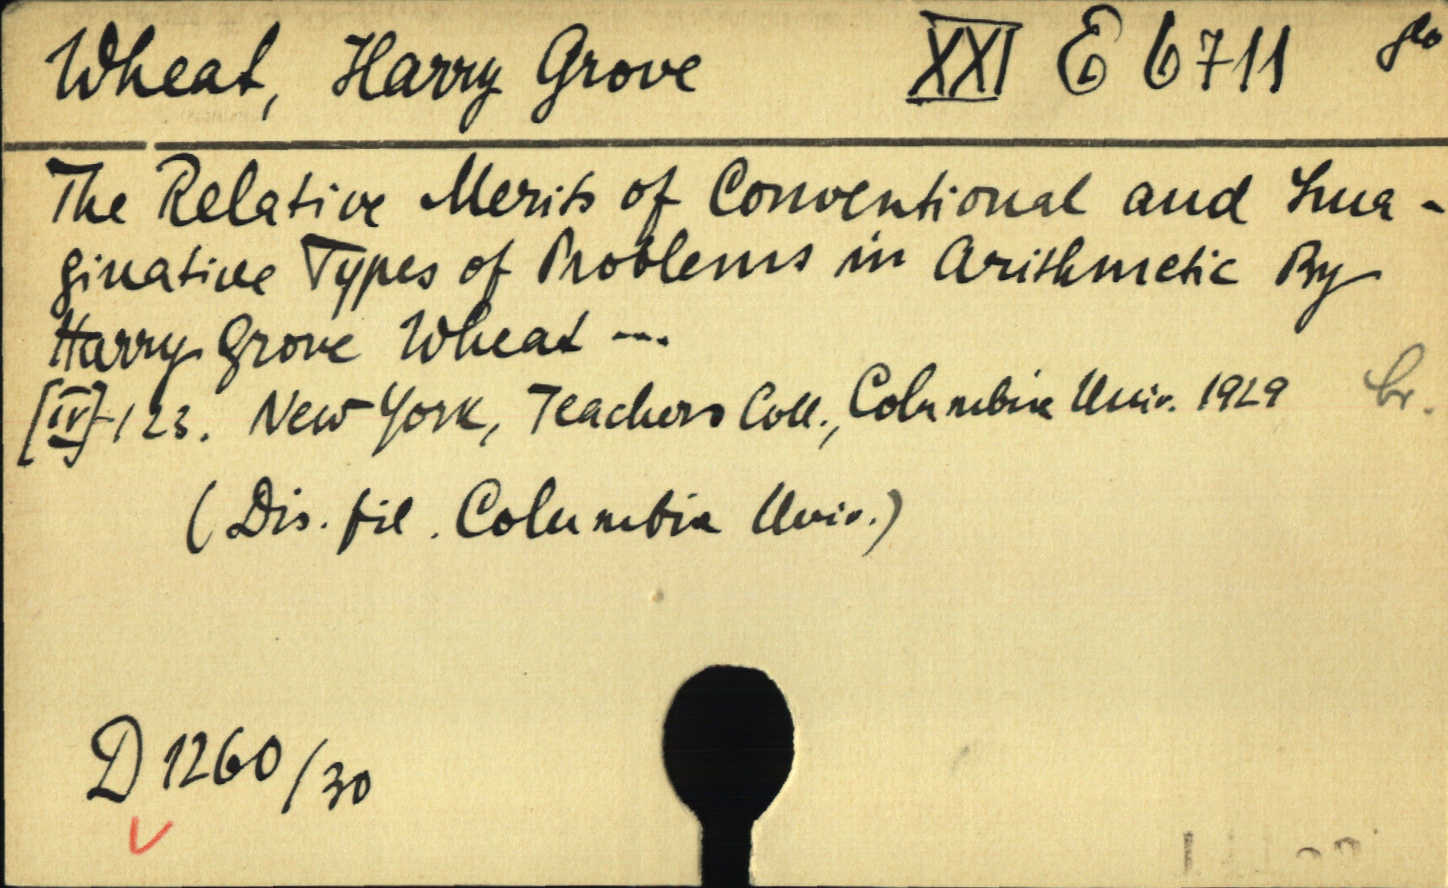 Wheat, Harry Grove XXI E 6711
The Relative Merits of Conventional and Ima-
ginative Types of Problems in Arithmetic By
Harry Grove Wheat ---.
[IV]-123. New York, Teachers Coll., Columbia Univ. 1929 br.
(Dis. fil. Columbia Univ.)
D 1260/30